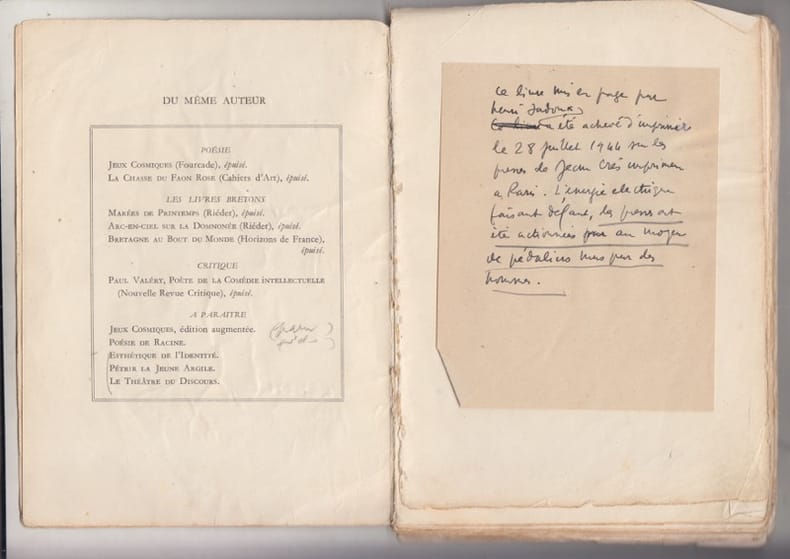 DU MÊME AUTEUR
POÉSIE
JEUX COSMIQUES (Fourcade), épuisé.
LA CHASSE DU FAON ROSE (Cahiers d'Art), épuisé.
LES LIVRES BRETONS
MARÉES DE PRINTEMPS (Riéder), épuisé.
ARC-EN-CIEL SUR LA DOMNONÉE (Riéder), épuisé.
BRETAGNE AU BOUT DU MONDE (Horizons de France),
épuisé.
CRITIQUE
PAUL VALÉRY, POÈTE DE LA COMÉDIE INTELLECTUELLE
(Nouvelle Revue Critique), épuisé.
A PARAITRE
JEUX COSMIQUES, édition augmentée.
POÉSIE DE RACINE.
ESTHÉTIQUE DE L'IDENTITÉ.
PÉTRIR LA JEUNE ARGILE.
LE THÉÂTRE DU DISCOURS.
Ce livre mis en page par
henri Jadoux
a été achevé d'imprimer
le 28 juillet 1944 sur les
presses de Jean Crès imprimeur
a Paris. L'energie electrique
faisant défaut, les presses ont
été actionnées au moyen
de pédaliers mus par des
hommes.